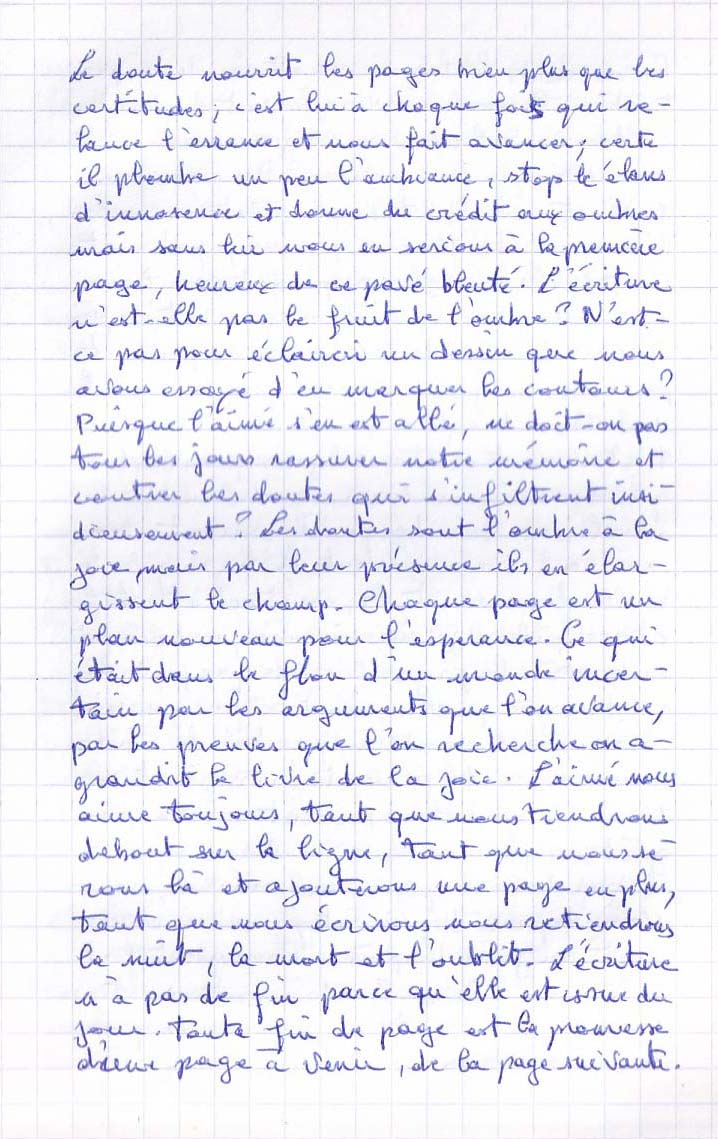 Le doute nourrit les pages bien plus que les
certitudes, c'est lui à chaque fois qui re-
lance l'errance et nous fait avancer, certe
il plombe un peu l'ambiance, stop le élans
d'innocence et donne du crédit aux ombres
mais sans lui nous en serions à la première
page, heureux de ce pavé bleuté. L'écriture
n'est-elle pas le fruit de l'ombre ? N'est-
ce pas pour éclaircir un dessin que nous
avons essayé d'en marquer les contours ?
Puisque l'aimé s'en est allé, ne doit-on pas
tous les jours rassurer notre mémoire et
contrer les doutes qui s'infiltrent insi-
dieusement ? Les doutes sont l'ombre à la
joie, mais par leur présence ils en élar-
gissent le champ. Chaque page est un
plan nouveau pour l'esperance. Ce qui
était dans le flou d'un monde incer-
tain par les arguments que l'on avance,
par les preuves que l'on recherche on a-
grandit le livre de la joie. L'aimé nous
aime toujours, tant que nous tiendrons
debout sur la ligne, tant que nous se-
rons là et ajouterons une page en plus,
tant que nous écrirons nous retiendrons
la nuit, la mort et l'oublit. L'écriture
n'a pas de fin parce qu'elle est issue du
jour. Toute fin de page est la promesse
d'une page à venir, de la page suivante.